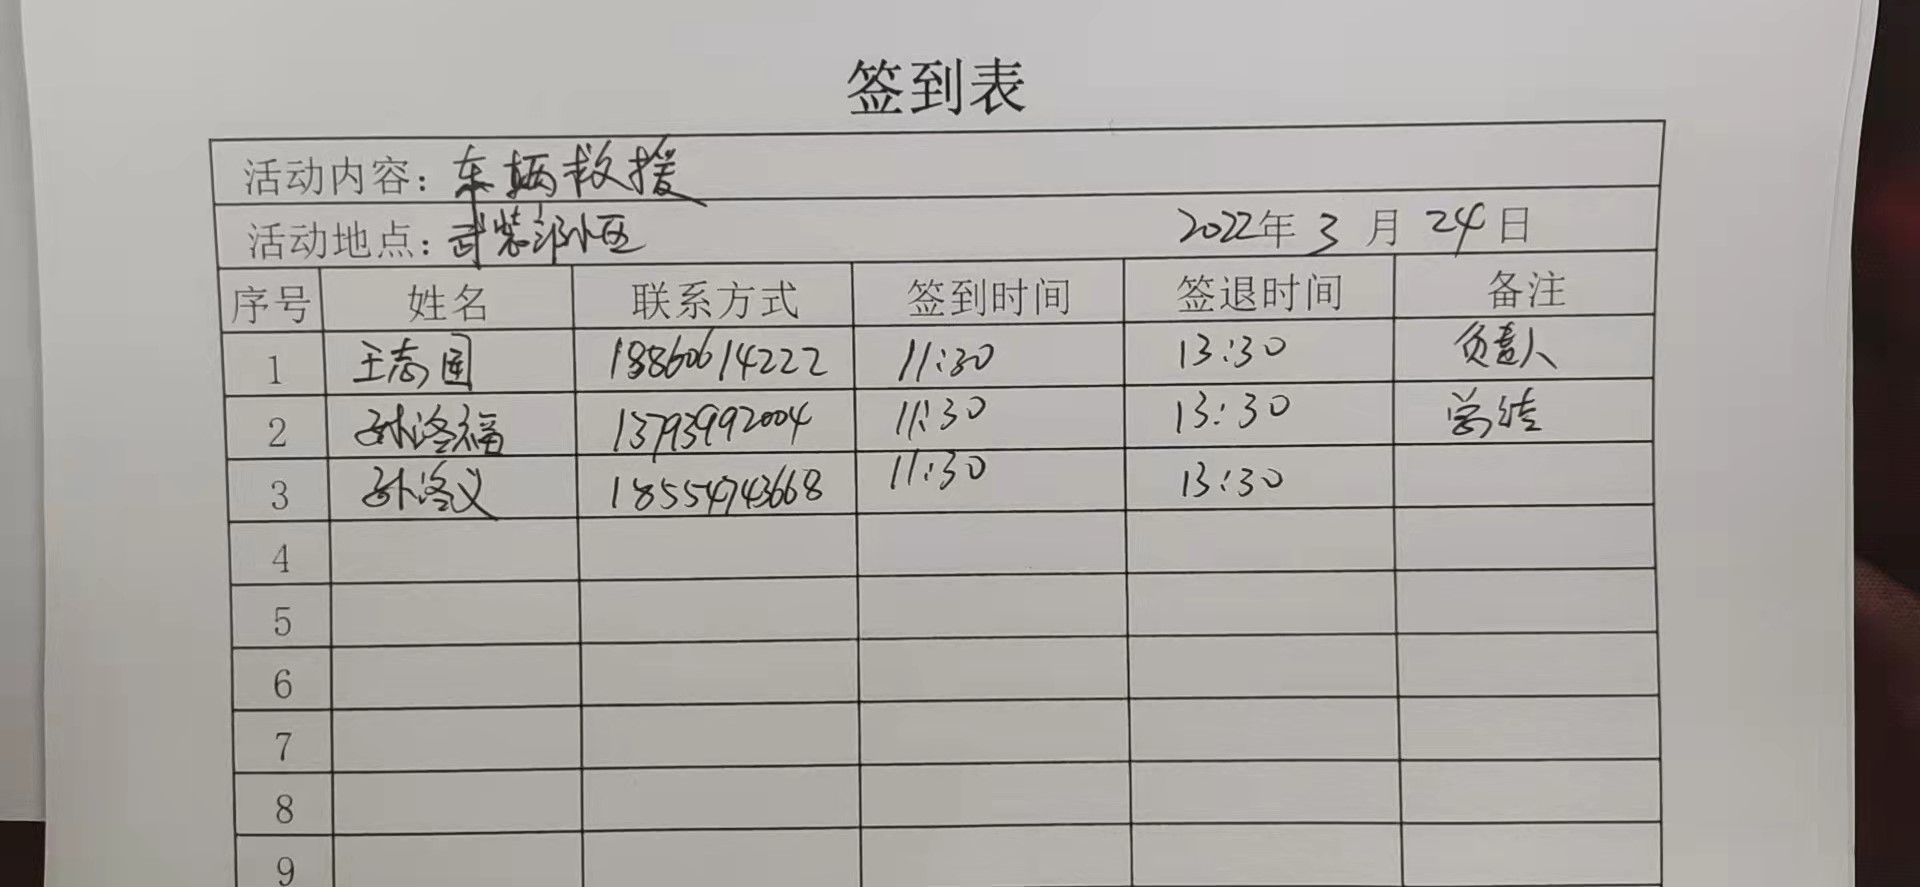 签到表
活动内容：车辆救援
活动地点：武装部小区 2022年3月24日
序号 姓名 联系方式 签到时间 签退时间 备注
1 王志国 18860614222 11:30 13:30 负责人
2 孙洛福 13793992004 11:30 13:30 总结
3 孙洛义 18554743668 11:30 13:30
4
5
6
7
8
9